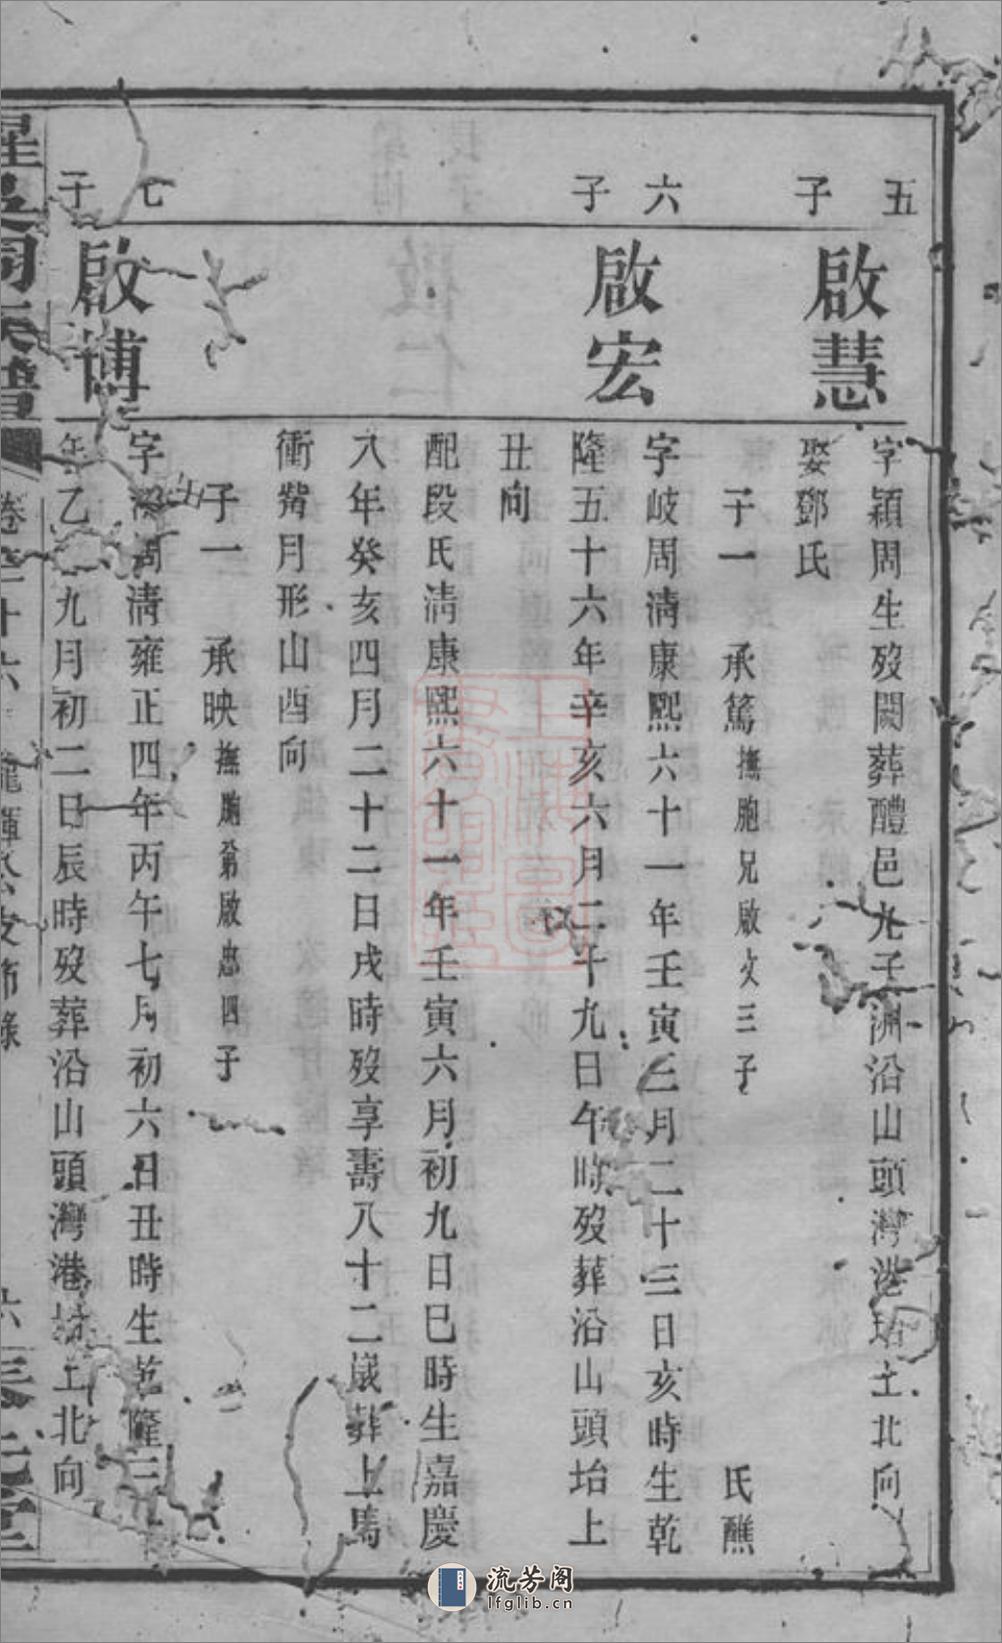 五子
啟慧
字穎周生歿闕葬醴邑九子洲沿山頭灣港坮土北向
娶鄧氏
子一　承篤撫胞兄啟文三子　氏醮
六子
啟宏
字岐周清康熙六十一年壬寅三月二十三日亥時生乾
隆五十六年辛亥六月二十九日午時歿葬沿山頭坮上
丑向
配段氏清康熙六十一年壬寅六月初九日巳時生嘉慶
八年癸亥四月二十二日戌時歿享壽八十二歲葬上馬
衝觜月形山酉向
子一　承映撫胞弟啟忠四子
七子
啟博
字周清雍正四年丙午七月初六日丑時生乾隆三十
年乙九月初二日辰時歿葬沿山頭灣港坮上北向
族譜
卷十六
六
堂
上海圖書館藏
流芳阁
lfglib.cn